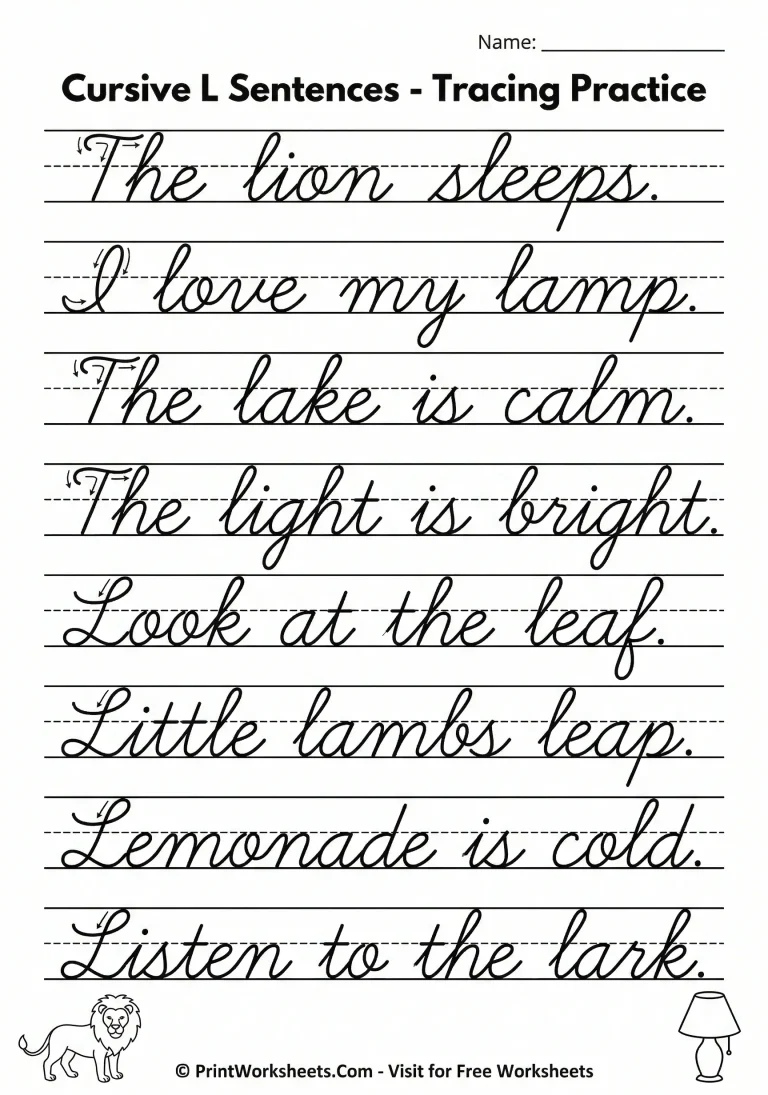 Name: ____________________
Cursive L Sentences - Tracing Practice
The lion sleeps.
I love my lamp.
The lake is calm.
The light is bright.
Look at the leaf.
Little lambs leap.
Lemonade is cold.
Listen to the lark.
© PrintWorksheets.Com - Visit for Free Worksheets